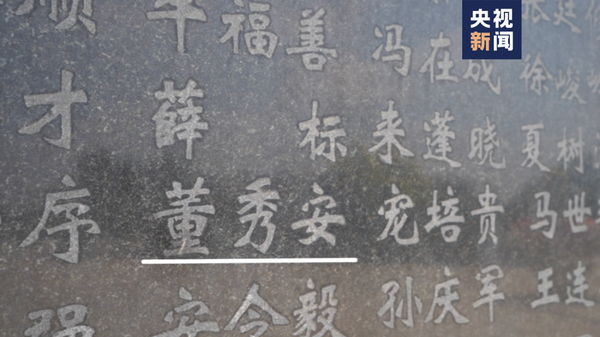 央视
新闻
顺 福善 冯在成 张廷
才 薛标 来蓬晓 徐峻
序 董秀安 宠培贵 夏树
强 安令毅 孙庆军 马世
王连